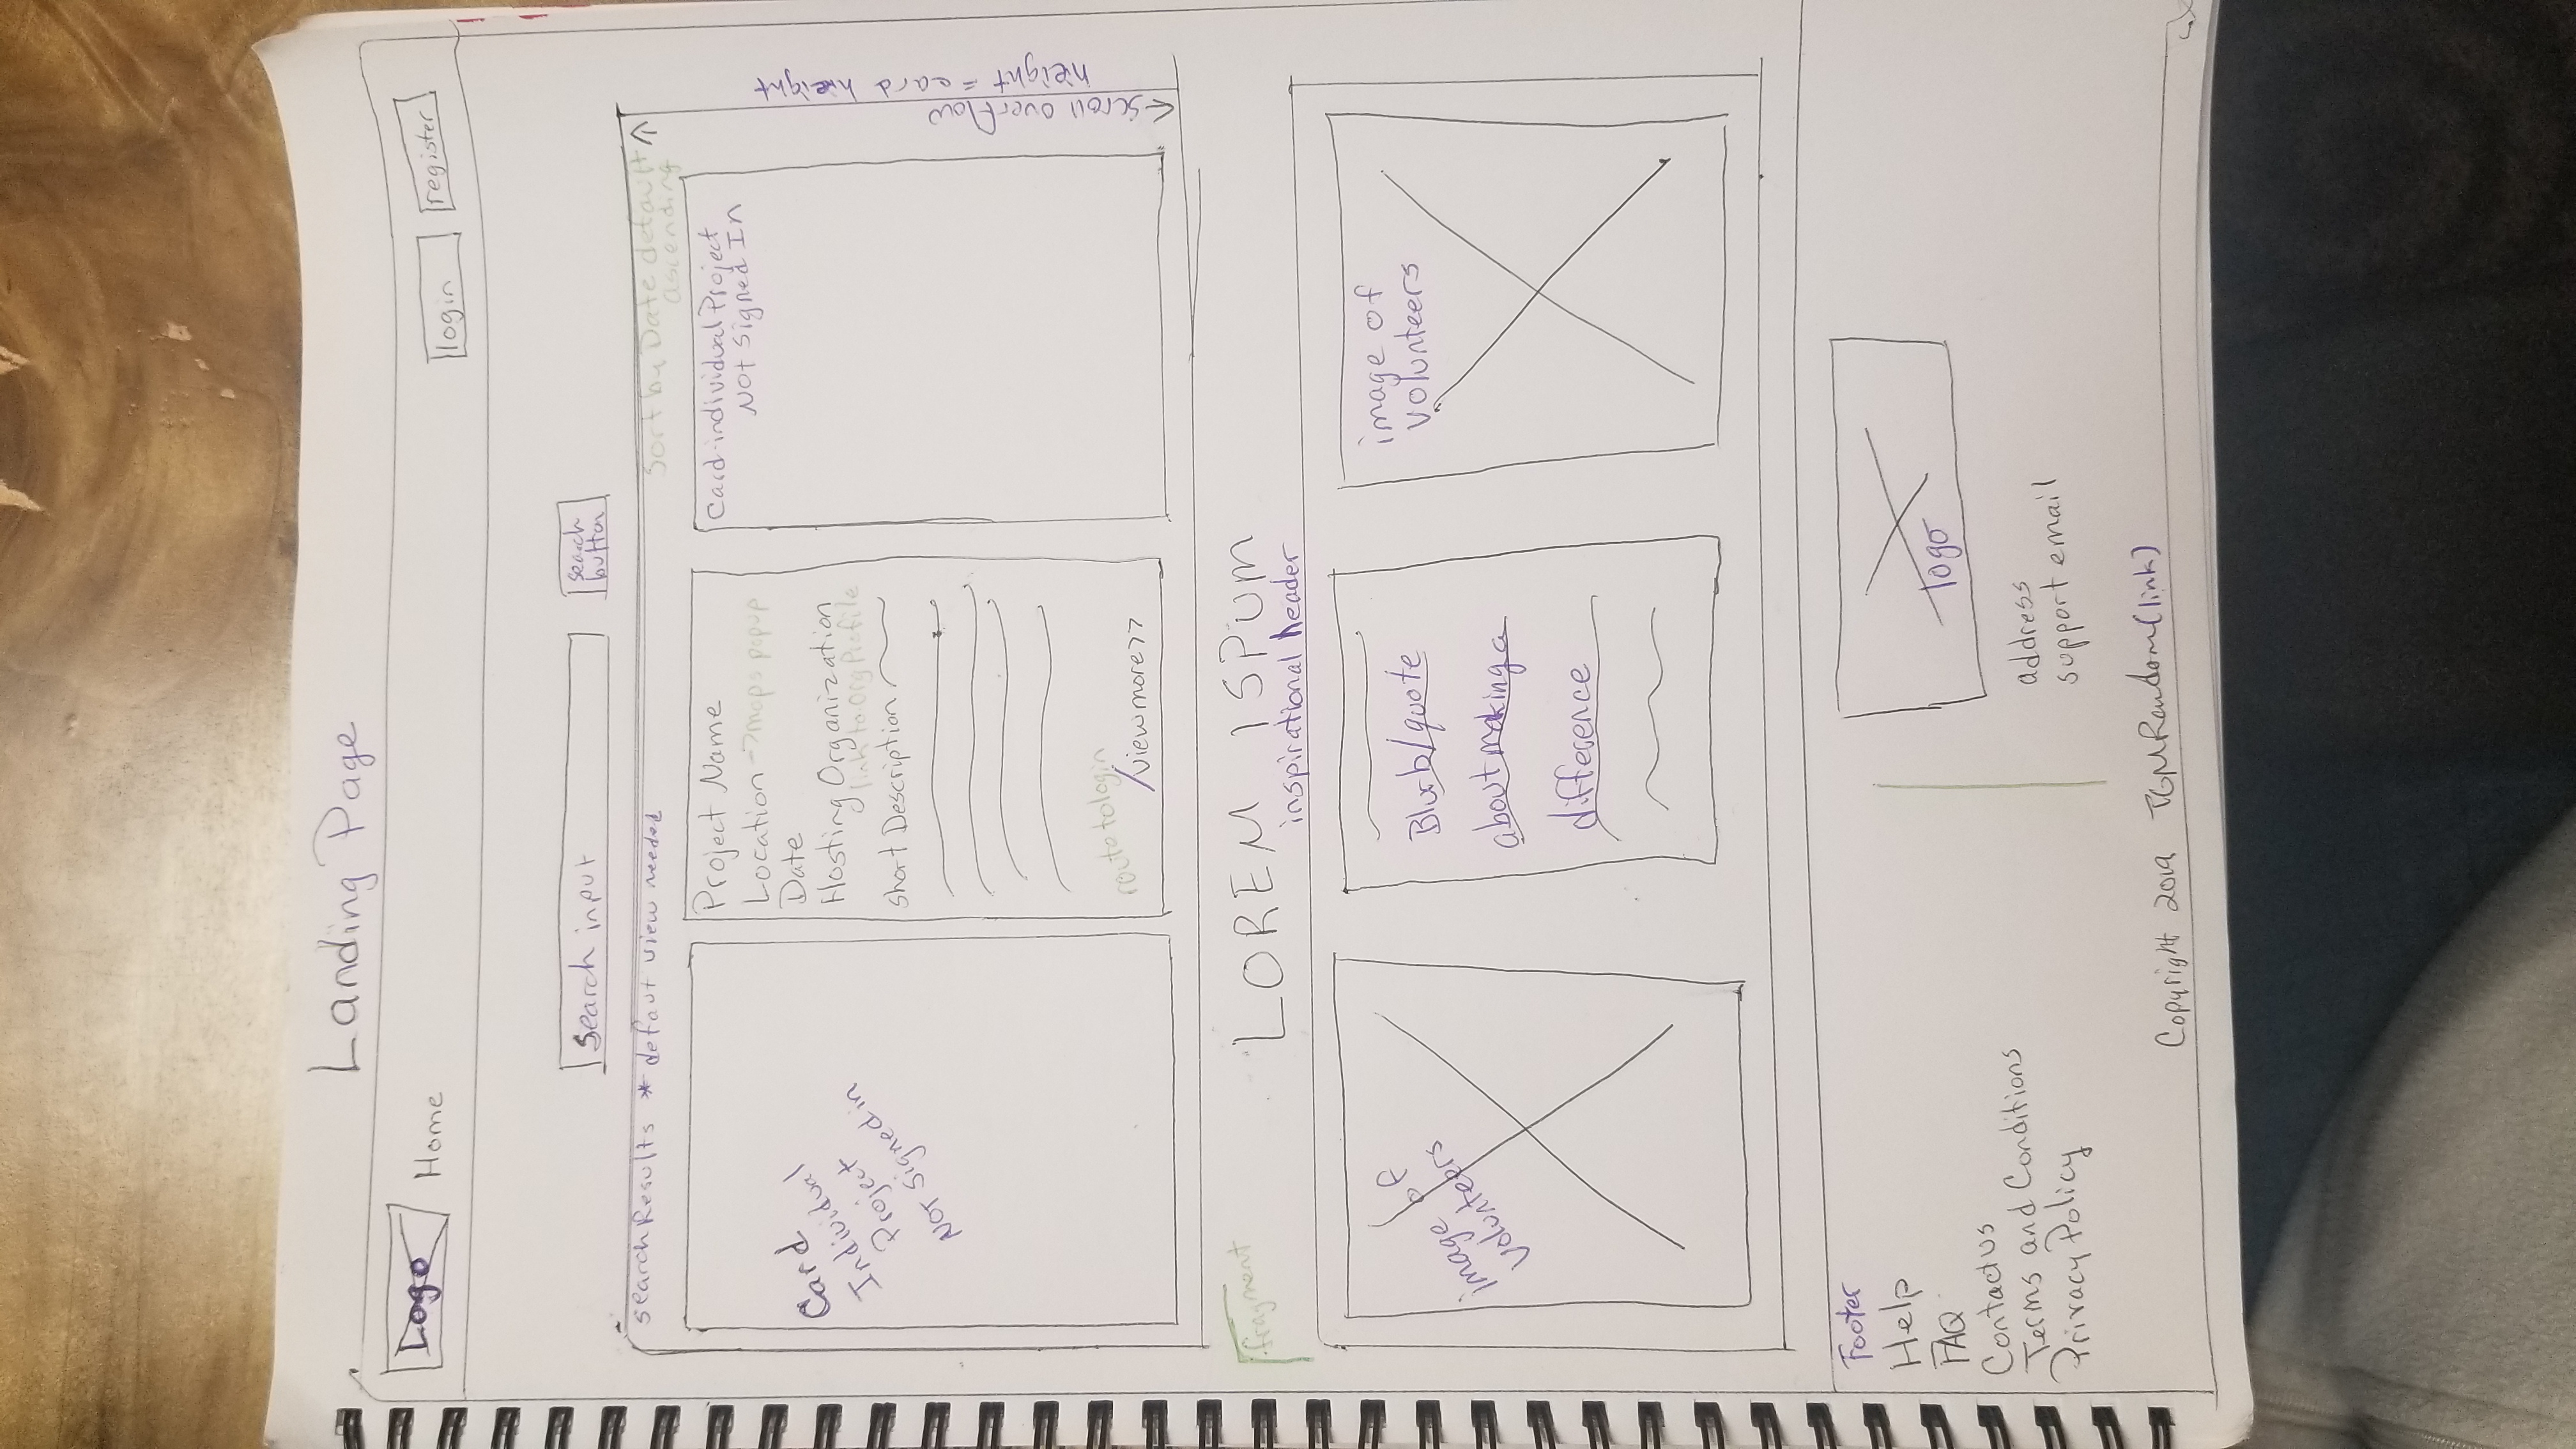 Landing Page
Logo
Home
login
register
search input
search
button
searchResults * defaut view needed
Sort by Date default
ascending
Card
Individual
Project
Not Signed in
Project Name
Location -> maps popup
Date
Hosting Organization
link to Org Profile
short Description
route to login
/viewmore>>
Card-individual Project
Not Signed In
scroll overflow
height = card hieight
fragment
LOREM ISPUM
inspirational header
image of
volunteers
Blurb/quote
about making a
difference
image of
volunteers
Footer
Help
FAQ
Contact us
Terms and Conditions
Privacy Policy
logo
address
support email
Copyright 2019 TGMRandom(link)